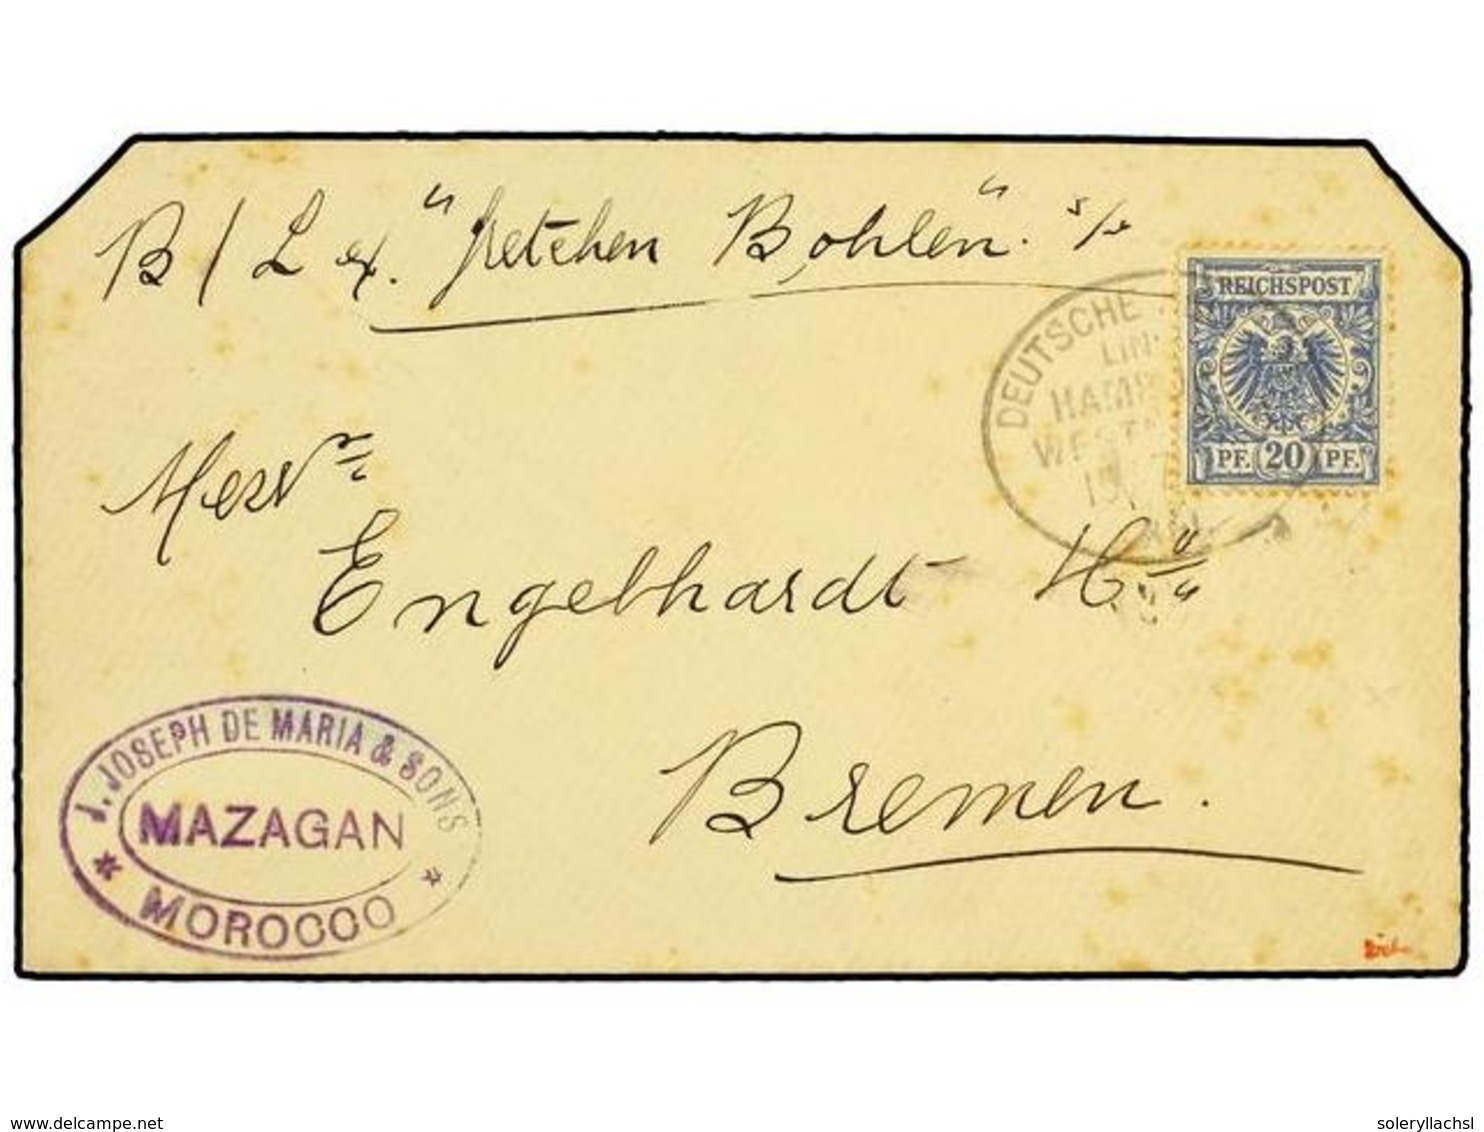 B/L ex. "Gretchen Bohlen". s/s
REICHSPOST
PF. 20 PF.
DEUTSCHE
Messrs
Engelhardt
Bremen.
J. JOSEPH DE MARIA & SONS
* MAZAGAN *
MOROCCO
www.delcampe.net
soleryllachsl